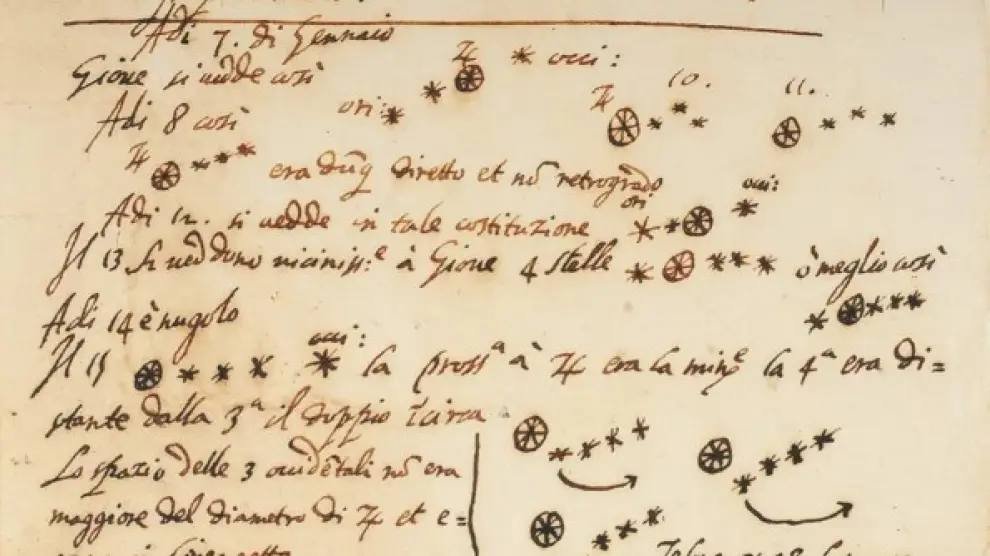 Adi 7. di Gennaio
Gione si vedde così ♃ occi:
Adi 8 così ori: ♃ 10. 11.
♃ era dūq diretto et nō retrogrado
Adi 12. si uedde in tale costituzione ori occi:
Il 13 si veddono viciniss:e à Gioue 4 stelle ò meglio così
Adi 14 è nugolo
Il 15 occi: la pross.a à ♃ era la min.e la 4.a era di=
stante dalla 3.a il doppio ī circa
Lo spazio delle 3 occidētali nō era
maggiore del diametro di ♃ et e=